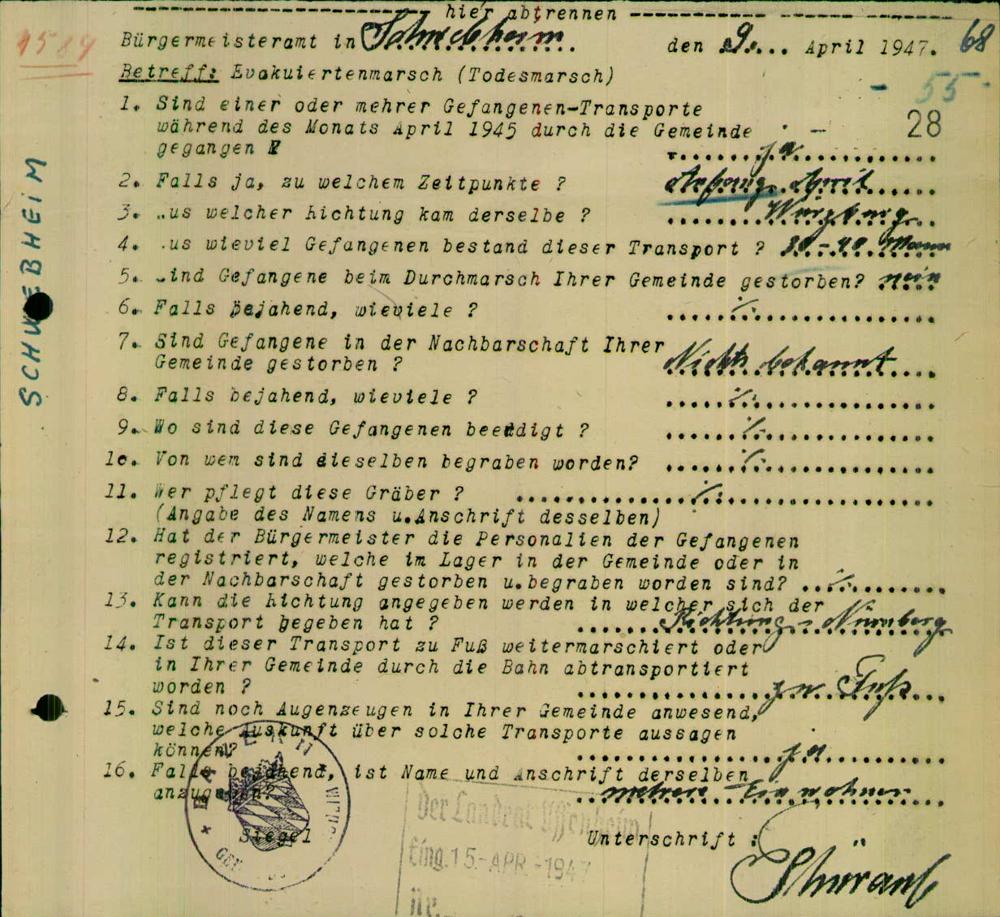 hier abtrennen
4589
Bürgermeisteramt in Schwebheim den 9. April 1947. 68
Betreff: Evakuiertenmarsch (Todesmarsch)
55
1. Sind einer oder mehrer Gefangenen-Transporte
während des Monats April 1945 durch die Gemeinde 28
gegangen ja
2. Falls ja, zu welchem Zeitpunkte ? Anfang April
3. us welcher Richtung kam derselbe ? Würzburg
4. us wieviel Gefangenen bestand dieser Transport ? 30-40 Mann
5. ind Gefangene beim Durchmarsch Ihrer Gemeinde gestorben? nein
6. Falls bejahend, wieviele ? ·/.
7. Sind Gefangene in der Nachbarschaft Ihrer
Gemeinde gestorben ? Nichts bekannt
8. Falls bejahend, wieviele ? ·/.
9. Wo sind diese Gefangenen beerdigt ? ·/.
10. Von wem sind dieselben begraben worden? ·/.
11. Wer pflegt diese Gräber ? ·/.
(Angabe des Namens u.Anschrift desselben)
12. Hat der Bürgermeister die Personalien der Gefangenen
registriert, welche im Lager in der Gemeinde oder in
der Nachbarschaft gestorben u.begraben worden sind? ·/.
13. Kann die Richtung angegeben werden in welcher sich der
Transport begeben hat ? Richtung Nürnberg
14. Ist dieser Transport zu Fuß weitermarschiert oder
in Ihrer Gemeinde durch die Bahn abtransportiert
worden ? zu Fuß
15. Sind noch Augenzeugen in Ihrer Gemeinde anwesend,
welche Auskunft über solche Transporte aussagen
können? ja
16. Falls bejahend, ist Name und Anschrift derselben
anzugeben? mehrere Einwohner
Siegel
BAYERN
Der Landrat Uffenheim
Eing. 15. APR. 1947
Nr.
Unterschrift :
SCHWEBHEIM